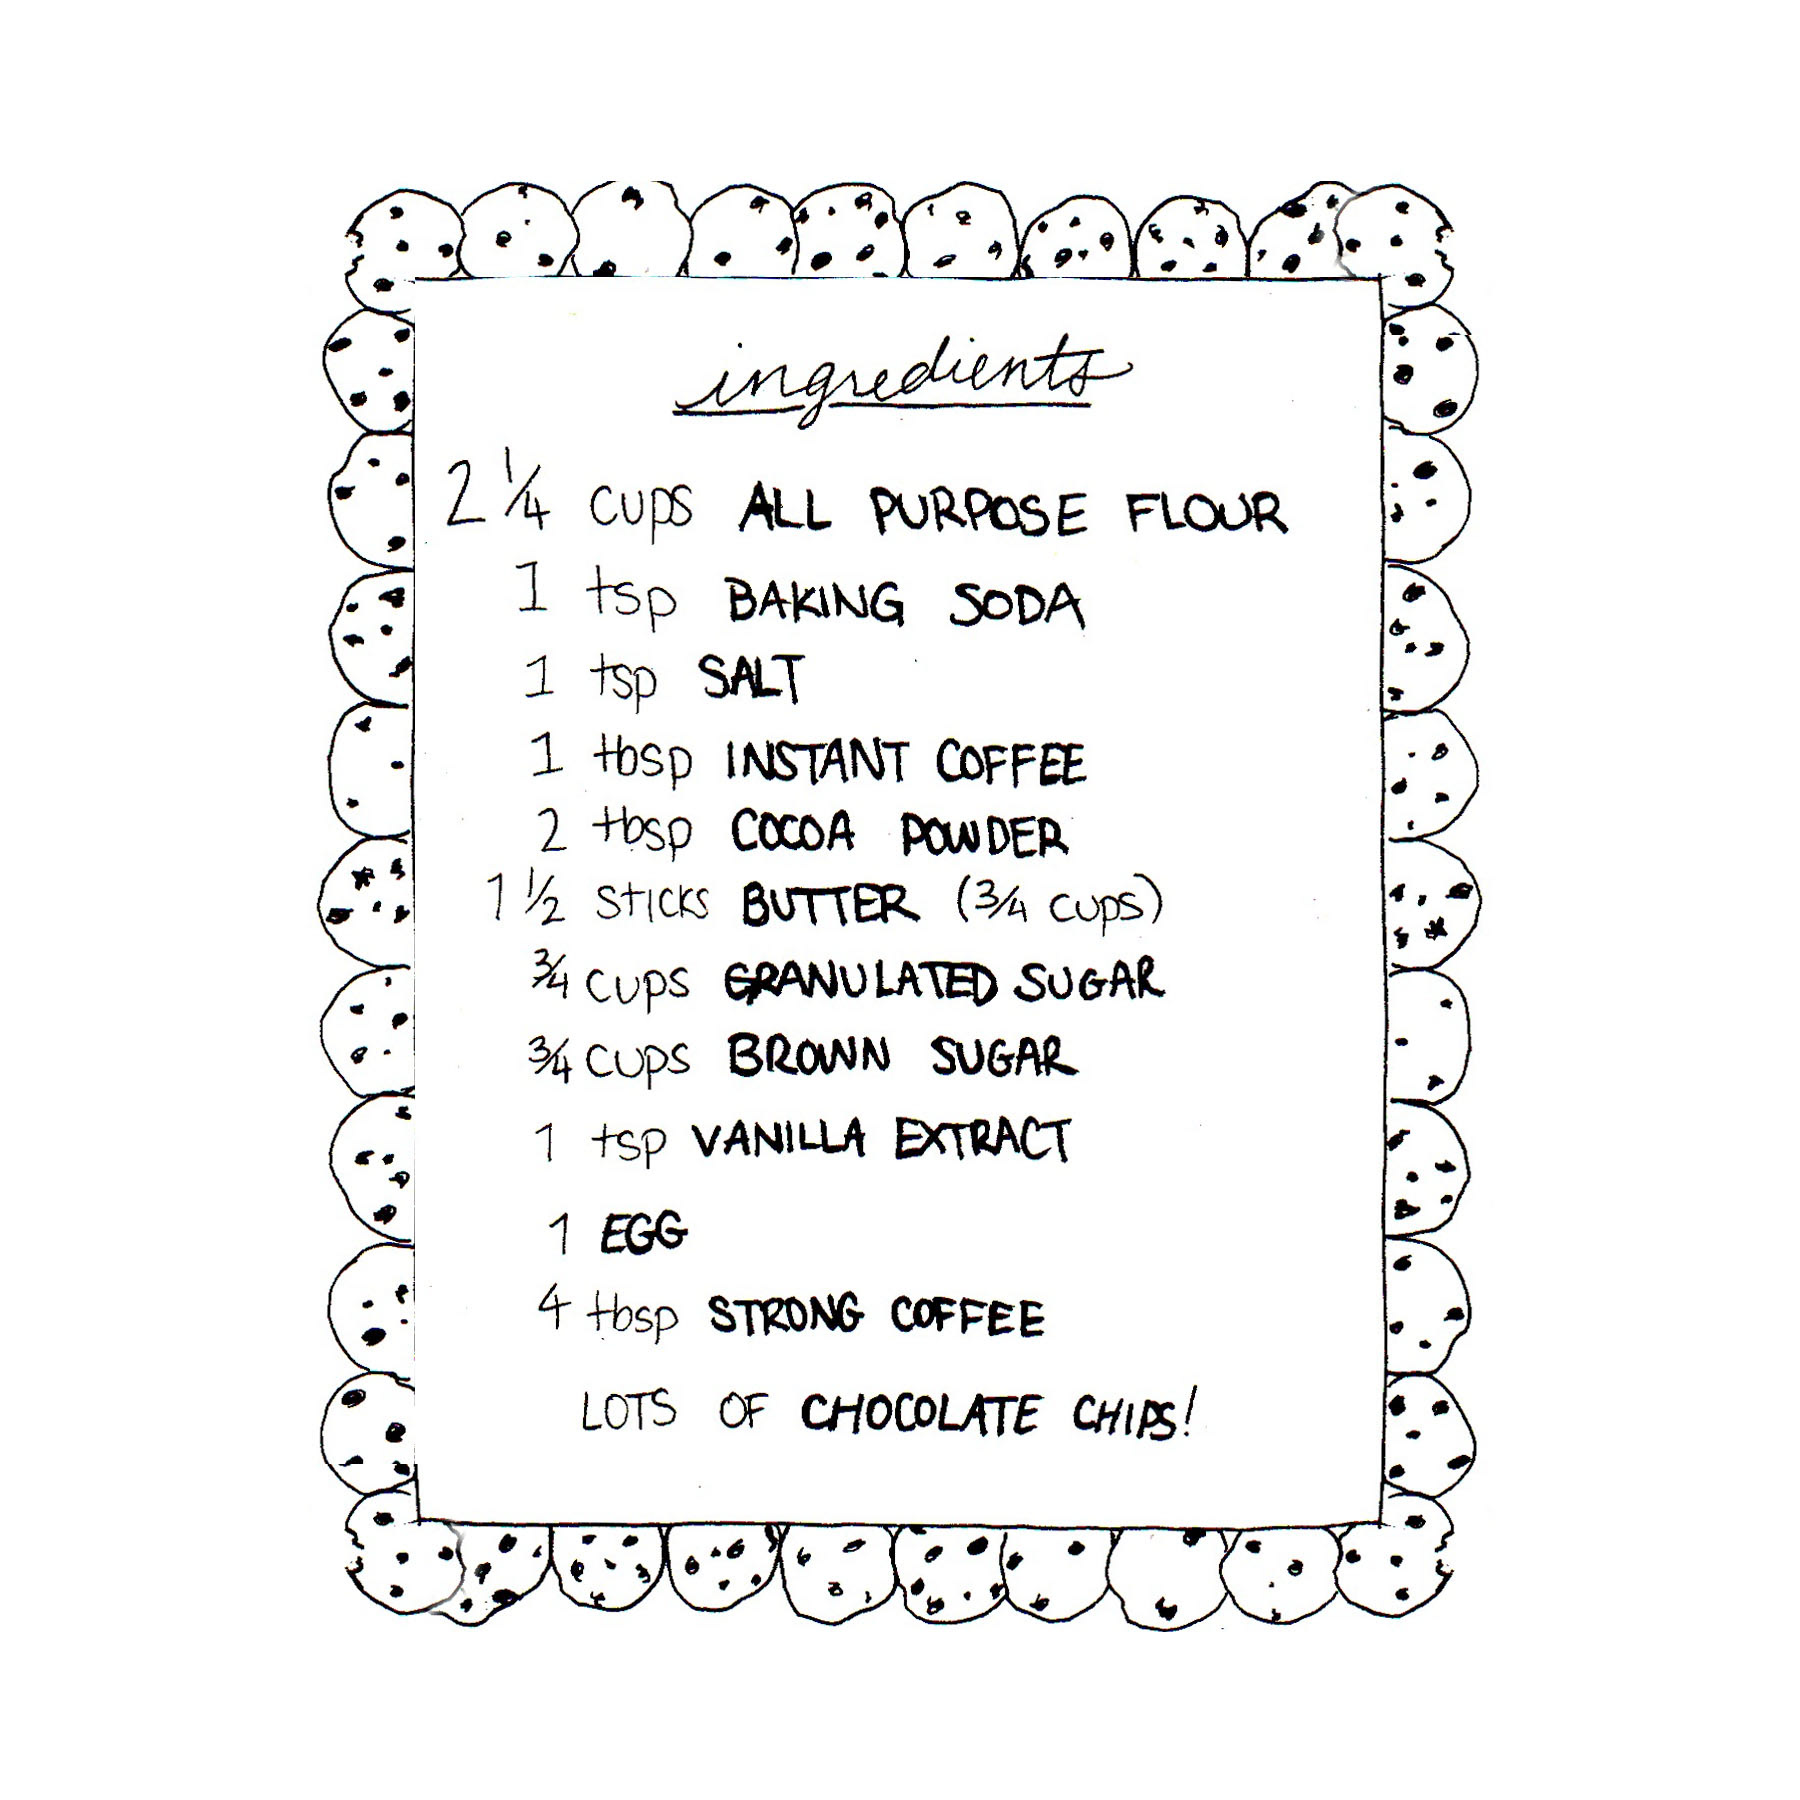 ingredients
2 1/4 cups ALL PURPOSE FLOUR
1 tsp BAKING SODA
1 tsp SALT
1 tbsp INSTANT COFFEE
2 tbsp COCOA POWDER
1 1/2 STICKS BUTTER (3/4 cups)
3/4 cups GRANULATED SUGAR
3/4 cups BROWN SUGAR
1 tsp VANILLA EXTRACT
1 EGG
4 tbsp STRONG COFFEE
LOTS OF CHOCOLATE CHIPS!